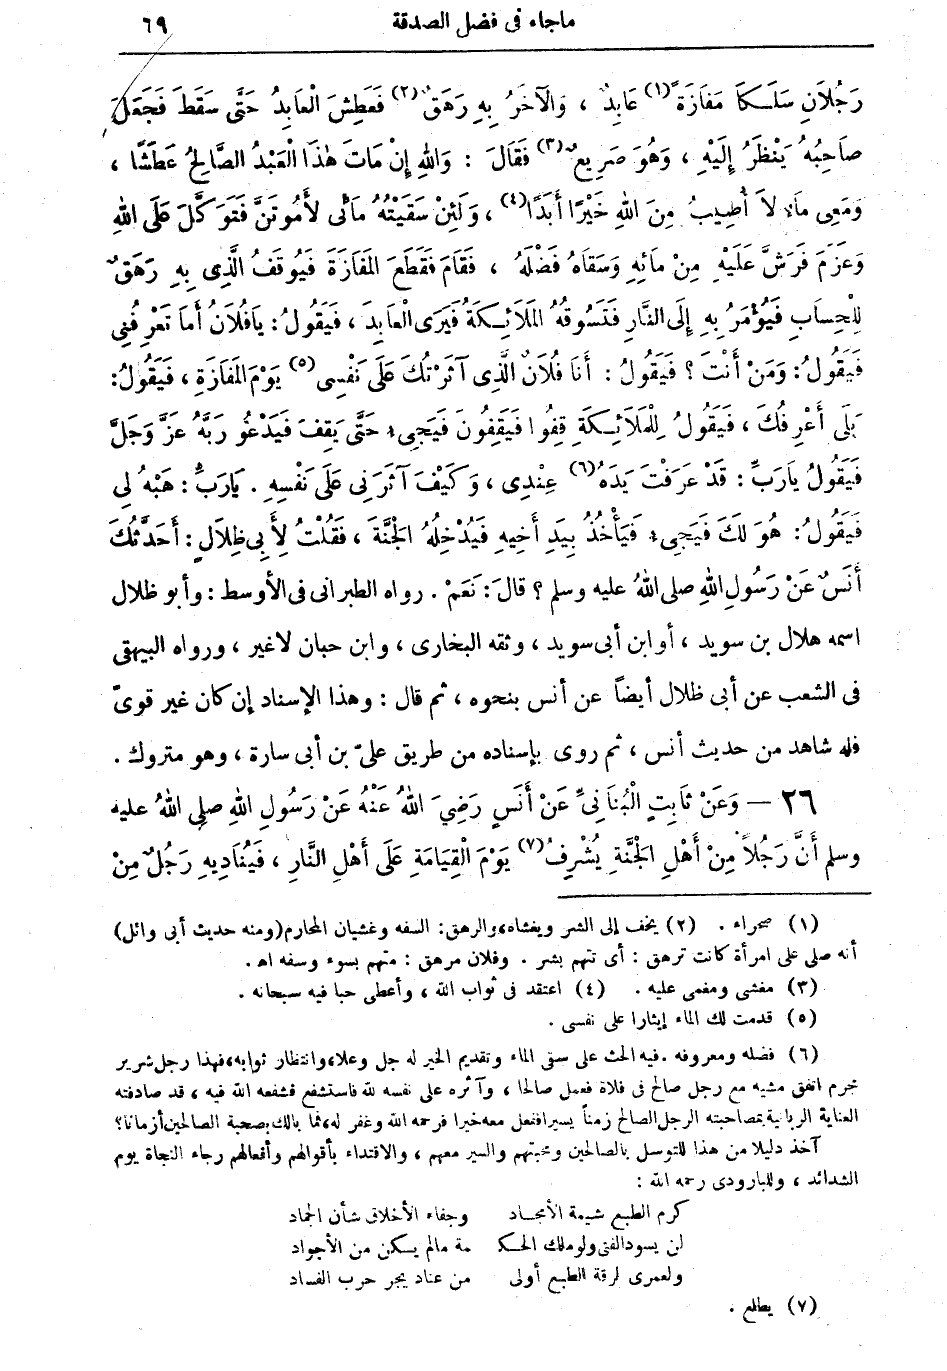 ماجاء فى فضل الصدقة ٦٩
رَجُلاَنِ سَلَـكَا مَفَازَةً (١) عَابِدٌ ، وَالْآخَرُ بِهِ رَهَقٌ (٢) فَعَطِشَ الْعَابِدُ حَتَّى سَقَطَ فَجَعَلَ
صَاحِبُهُ يَنْظُرُ إِلَيْهِ ، وَهُوَ صَرِيعٌ (٣) فَقَالَ : وَاللهِ إِنْ مَاتَ هٰذَا الْعَبْدُ الصَّالِحُ عَطَشًا ،
وَمَعِى مَاءٌ لاَ أُصِيبُ مِنَ اللهِ خَيْرًا أَبَدًا (٤) ، وَلَئِنْ سَقَيْتُهُ مَائِى لأَمُوتَنَّ فَتَوَكَّلَ عَلَى اللهِ
وَعَزَمَ فَرَشَّ عَلَيْهِ مِنْ مَائِهِ وَسَقَاهُ فَضْلَهُ ، فَقَامَ فَقَطَعَ المَفَازَةَ فَيُوقَفُ الَّذِى بِهِ رَهَقٌ
لِلْحِسَابِ فَيُؤْمَرُ بِهِ إِلَى النَّارِ فَتَسُوقُهُ المَلَائِـكَةُ فَيَرَى الْعَابِدَ ، فَيَقُولُ : يَافُلَانُ أَمَا تَعْرِفُنِى
فَيَقُولُ : وَمَنْ أَنْتَ ؟ فَيَقُولُ : أَنَا فُلَانٌ الَّذِى آثَرْتُكَ عَلَى نَفْسِى (٥) يَوْمَ المَفَازَةِ ، فَيَقُولُ :
بَلَى أَعْرِفُكَ ، فَيَقُولُ لِلْمَلَائِـكَةِ قِفُوا فَيَقِفُونَ فَيَجِىءُ حَتَّى يَقِفَ فَيَدْعُو رَبَّهُ عَزَّ وَجَلَّ
فَيَقُولُ يَارَبِّ : قَدْ عَرَفْتَ يَدَهُ (٦) عِنْدِى ، وَكَيْفَ آثَرَنِى عَلَى نَفْسِهِ . يَارَبِّ : هَبْهُ لِى
فَيَقُولُ : هُوَ لَكَ فَيَجِىءُ فَيَأْخُذُ بِيَدِ أَخِيهِ فَيُدْخِلُهُ الْجَنَّةَ ، فَقُلْتُ لِأَبِى ظِلَالٍ : أَحَدَّثَكَ
أَنَسٌ عَنْ رَسُولِ اللهِ صلى اللهُ عليه وسلم ؟ قَالَ : نَعَمْ . رواه الطبرانى فى الأوسط : وأبو ظلال
اسمه هلال بن سويد ، أو ابن أبى سويد ، وثقه البخارى ، وابن حبان لاغير ، ورواه البيهقى
فى الشعب عن أبى ظلال أيضاً عن أنس بنحوه ، ثم قال : وهذا الإسناد إن كان غير قوىّ
فله شاهد من حديث أنس ، ثم روى بإسناده من طريق علىّ بن أبى سارة ، وهو متروك .
٢٦ — وَعَنْ ثَابِتٍ الْبُنَانِىِّ عَنْ أَنَسٍ رَضِيَ اللهُ عَنْهُ عَنْ رَسُولِ اللهِ صلى اللهُ عليه
وسلم أَنَّ رَجُلاً مِنْ أَهْلِ الْجَنَّةِ يُشْرِفُ (٧) يَوْمَ الْقِيَامَةِ عَلَى أَهْلِ النَّارِ ، فَيُنَادِيهِ رَجُلٌ مِنْ
(١) صحراء . (٢) يخف إلى الشر ويغشاه، والرهق: السفه وغشيان المحارم (ومنه حديث أبى وائل)
أنه صلى على امرأة كانت ترهق : أى تتهم بشر . وفلان مرهق : متهم بسوء وسفه اهـ .
(٣) مغشى ومغمى عليه . (٤) اعتقد فى ثواب الله ، وأعطى حبا فيه سبحانه .
(٥) قدمت لك الماء إيثارا على نفسى .
(٦) فضله ومعروفه . فيه الحث على سقى الماء وتقديم الخير له جل وعلا، وانتظار ثوابه، فهذا رجل شرير
مجرم اتفق مشيه مع رجل صالح فى فلاة فعمل صالحا ، وآثره على نفسه لله فاستشفع فشفعه الله فيه ، قد صادفته
العناية الربانية بمصاحبته الرجل الصالح زمناً يسيرا ففعل معه خيرا فرحمه الله وغفر له، فما بالك بصحبة الصالحين أزمانا؟
آخذ دليلا من هذا للتوسل بالصالحين ومحبتهم والسير معهم ، والاقتداء بأقوالهم وأفعالهم رجاء النجاة يوم
الشدائد ، وللبارودى رحمه الله :
كرم الطبع شيمة الأمجـاد وجفاء الأخلاق شأن الجماد
لن يسود الفتى ولو ملك الحكـ مة مالم يـكن من الأجواد
ولعمرى لرقة الطبع أولى من عناد يجر حرب الفساد
(٧) يطلع .